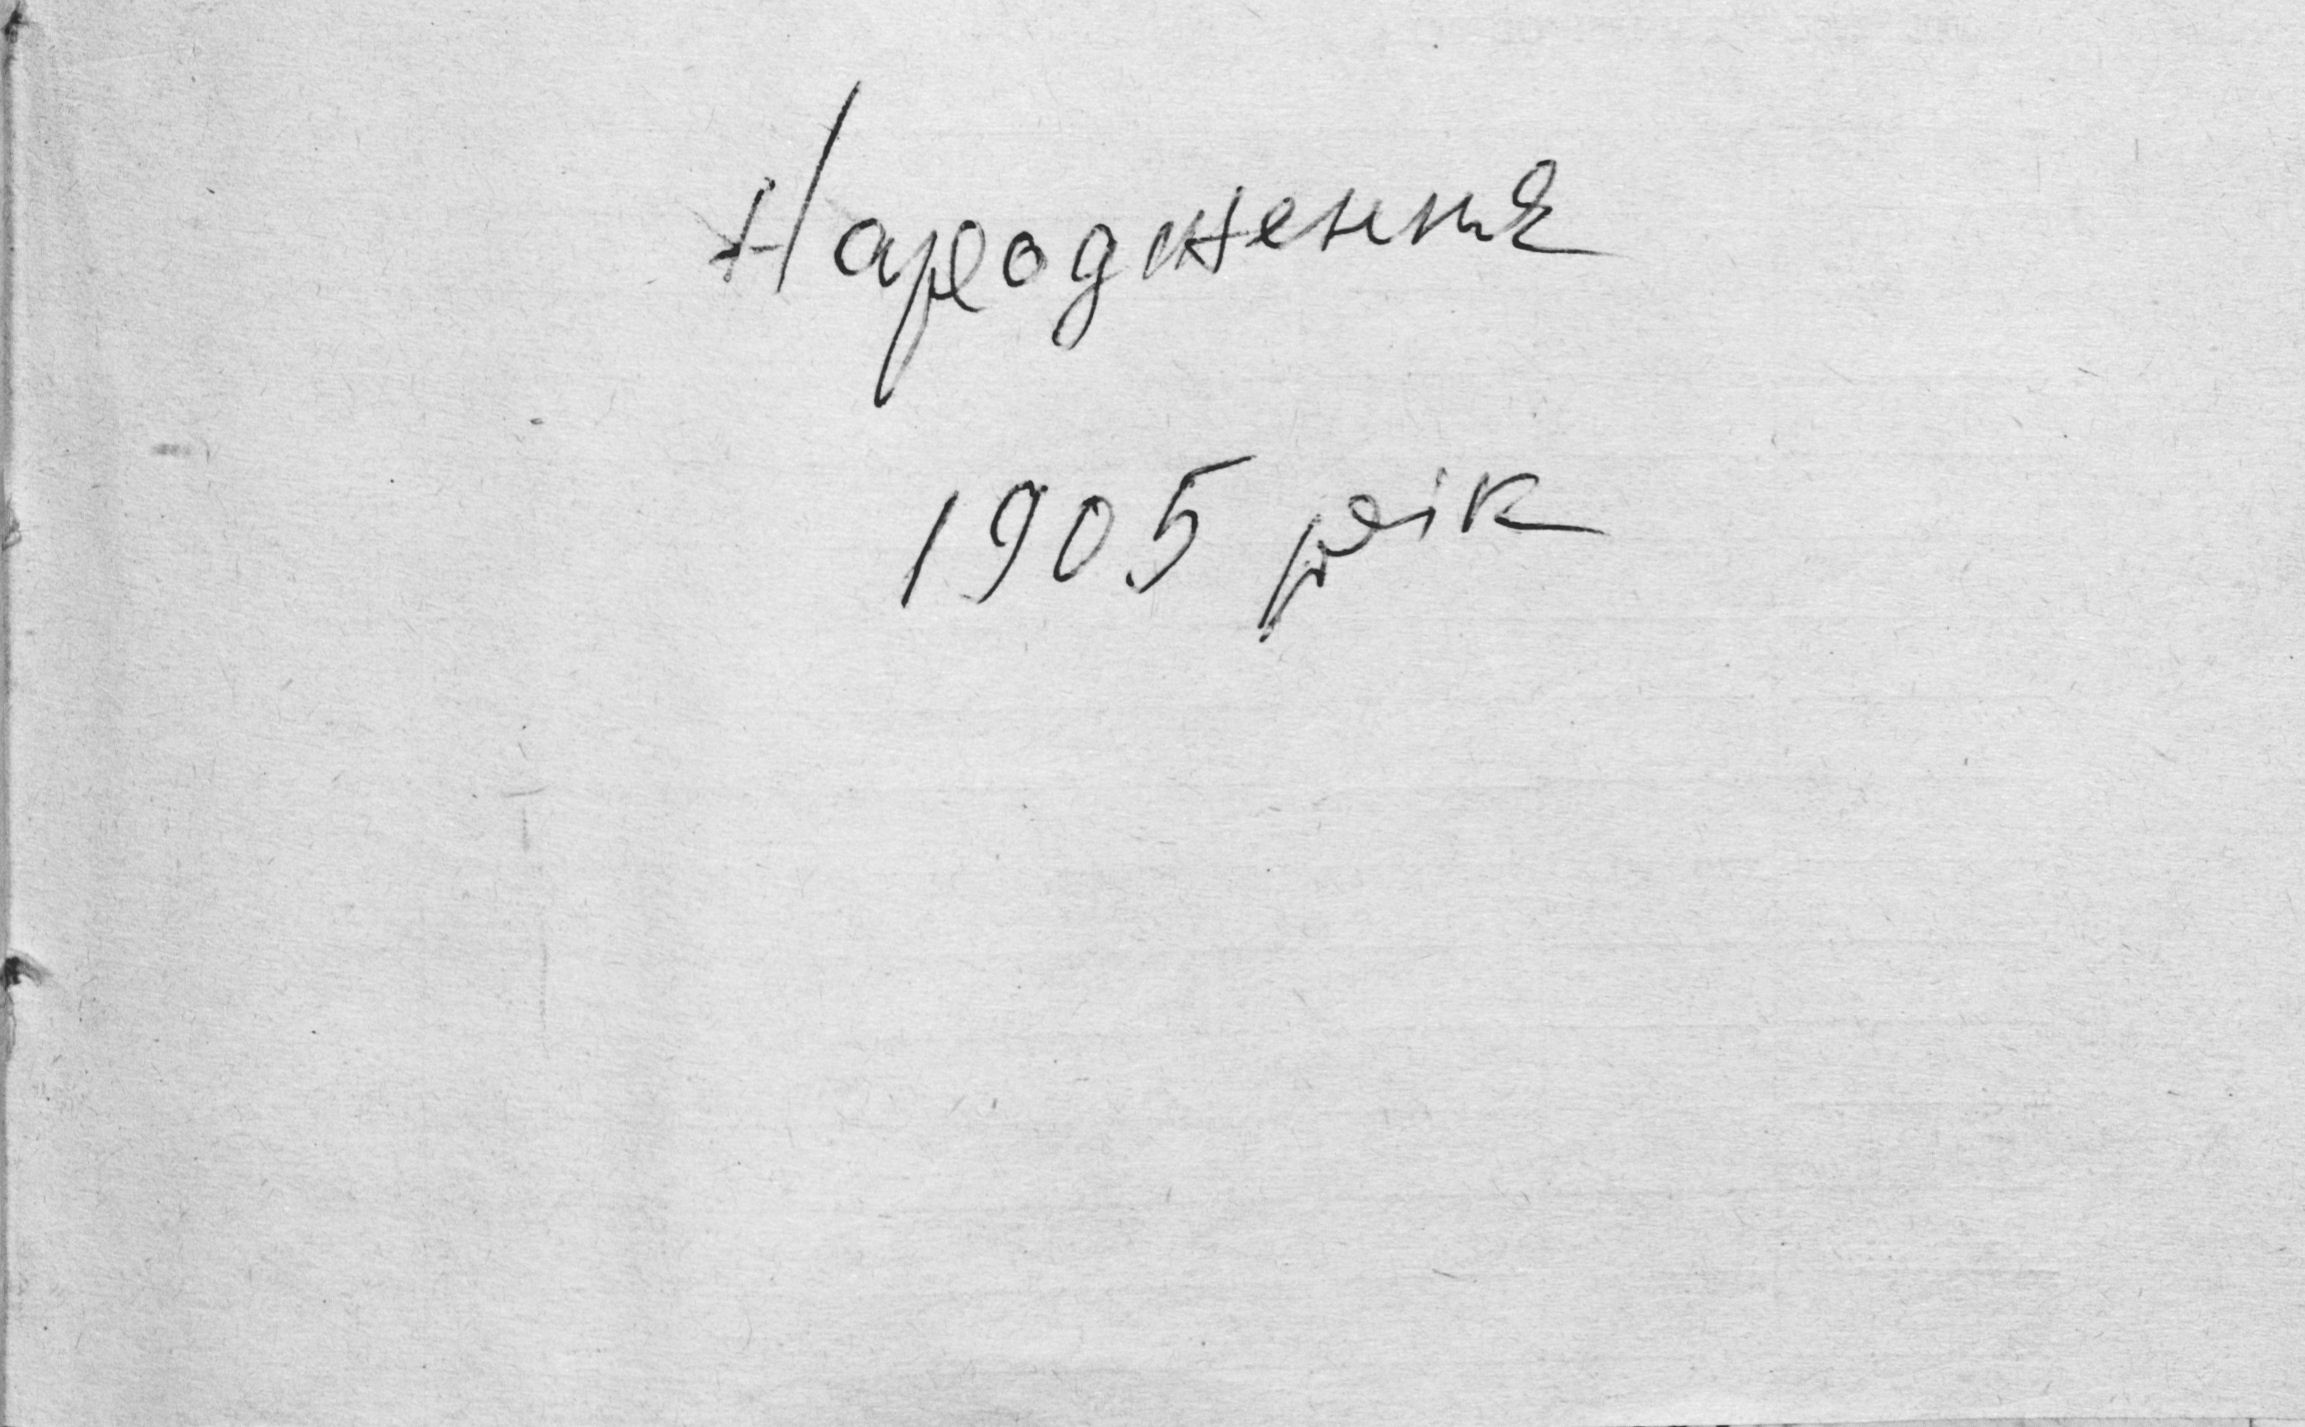 Народження
1905 рік